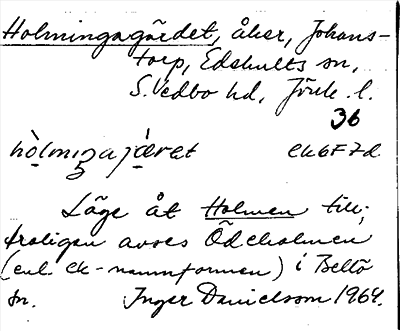 Holmingagärdet, åker, Johans-
torp, Edshults sn,
S. Vedbo hd, Jönk. l.
36
hòlmıŋaɟæret ek6F7d.
Läge åt Holmen till;
troligen avses Ödeholmen
(enl. ek-namnformen) i Bellö
sn. Inger Danielsson 1964.